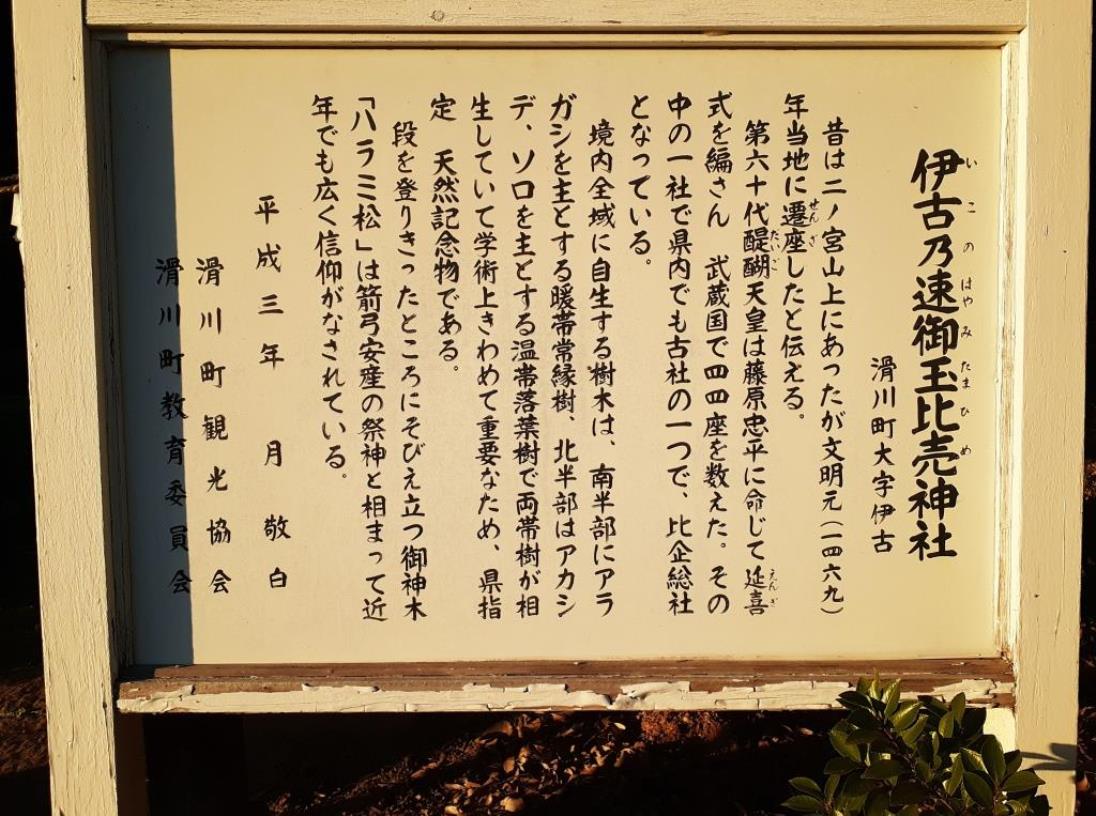 伊古乃速御玉比売神社
いこのはやみたまひめ
滑川町大字伊古
昔は二ノ宮山上にあったが文明元(一四六九)
年当地に遷座したと伝える。
せんざ
第六十代醍醐天皇は藤原忠平に命じて延喜
だいご
えんぎ
式を編さん 武蔵国で四四座を数えた。その
中の一社で県内でも古社の一つで、比企総社
となっている。
境内全域に自生する樹木は、南半部にアラ
ガシを主とする暖帯常緑樹、北半部はアカシ
デ、ソロを主とする温帯落葉樹で両帯樹が相
生していて学術上きわめて重要なため、県指
定 天然記念物である。
段を登りきったところにそびえ立つ御神木
「ハラミ松」は箭弓安産の祭神と相まって近
年でも広く信仰がなされている。
平成三年 月 敬白
滑川町観光協会
滑川町教育委員会